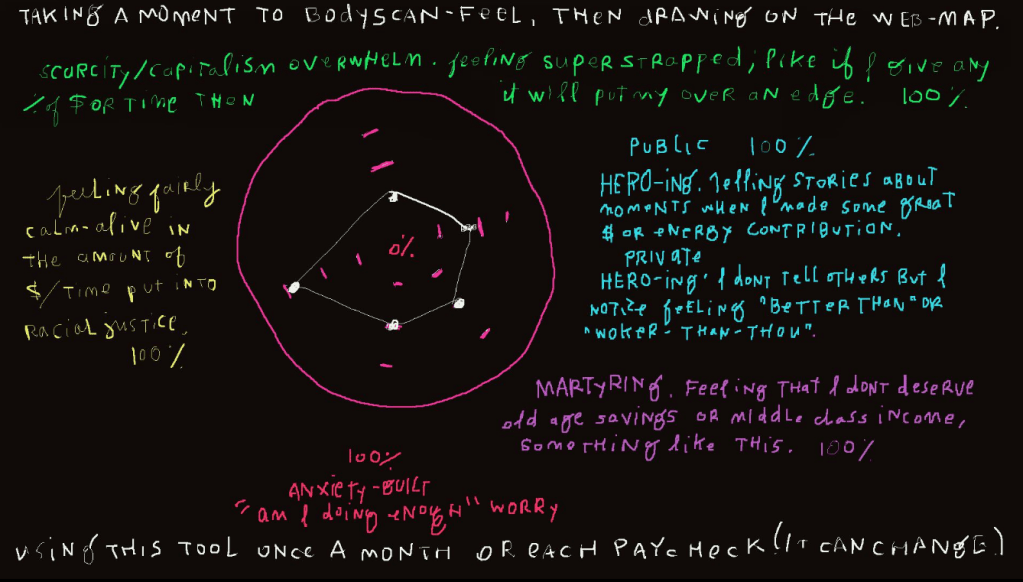 TAKING A MOMENT TO BODYSCAN-FEEL, THEN DRAWING ON THE WEB-MAP.
SCURCITY/CAPITALISM OVERWHELM. feeling SUPER STRAPPED; like if I GIVE ANY
% of $ OR TIME THEN it will put my OVER AN edge. 100%
feeling fairly
calm-alive IN
THE amount of
$/TIME put INTO
Racial justice.
100%
0%
PUBLIC 100%
HERO-ING. Telling STORIES ABOUT
MOMENTS WHEN I made some GREAT
$ OR ENERGY CONTRIBUTION.
PRIVATE
HERO-ing. I DONT TELL OTHERS BUT I
NOTICE feELING "BETTER THAN" OR
"WOKER-THAN-THOU".
MARTYRING. Feeling THAT I DONT deserve
old age savings OR middle class INCOME,
SOMETHING like THIS. 100%
100%
ANXIETY-BUILT
"am I doing ENOGH" WORRY
USING THIS TOOL ONCE A MONTH OR EACH PAYCHECK (IT CAN CHANGE)